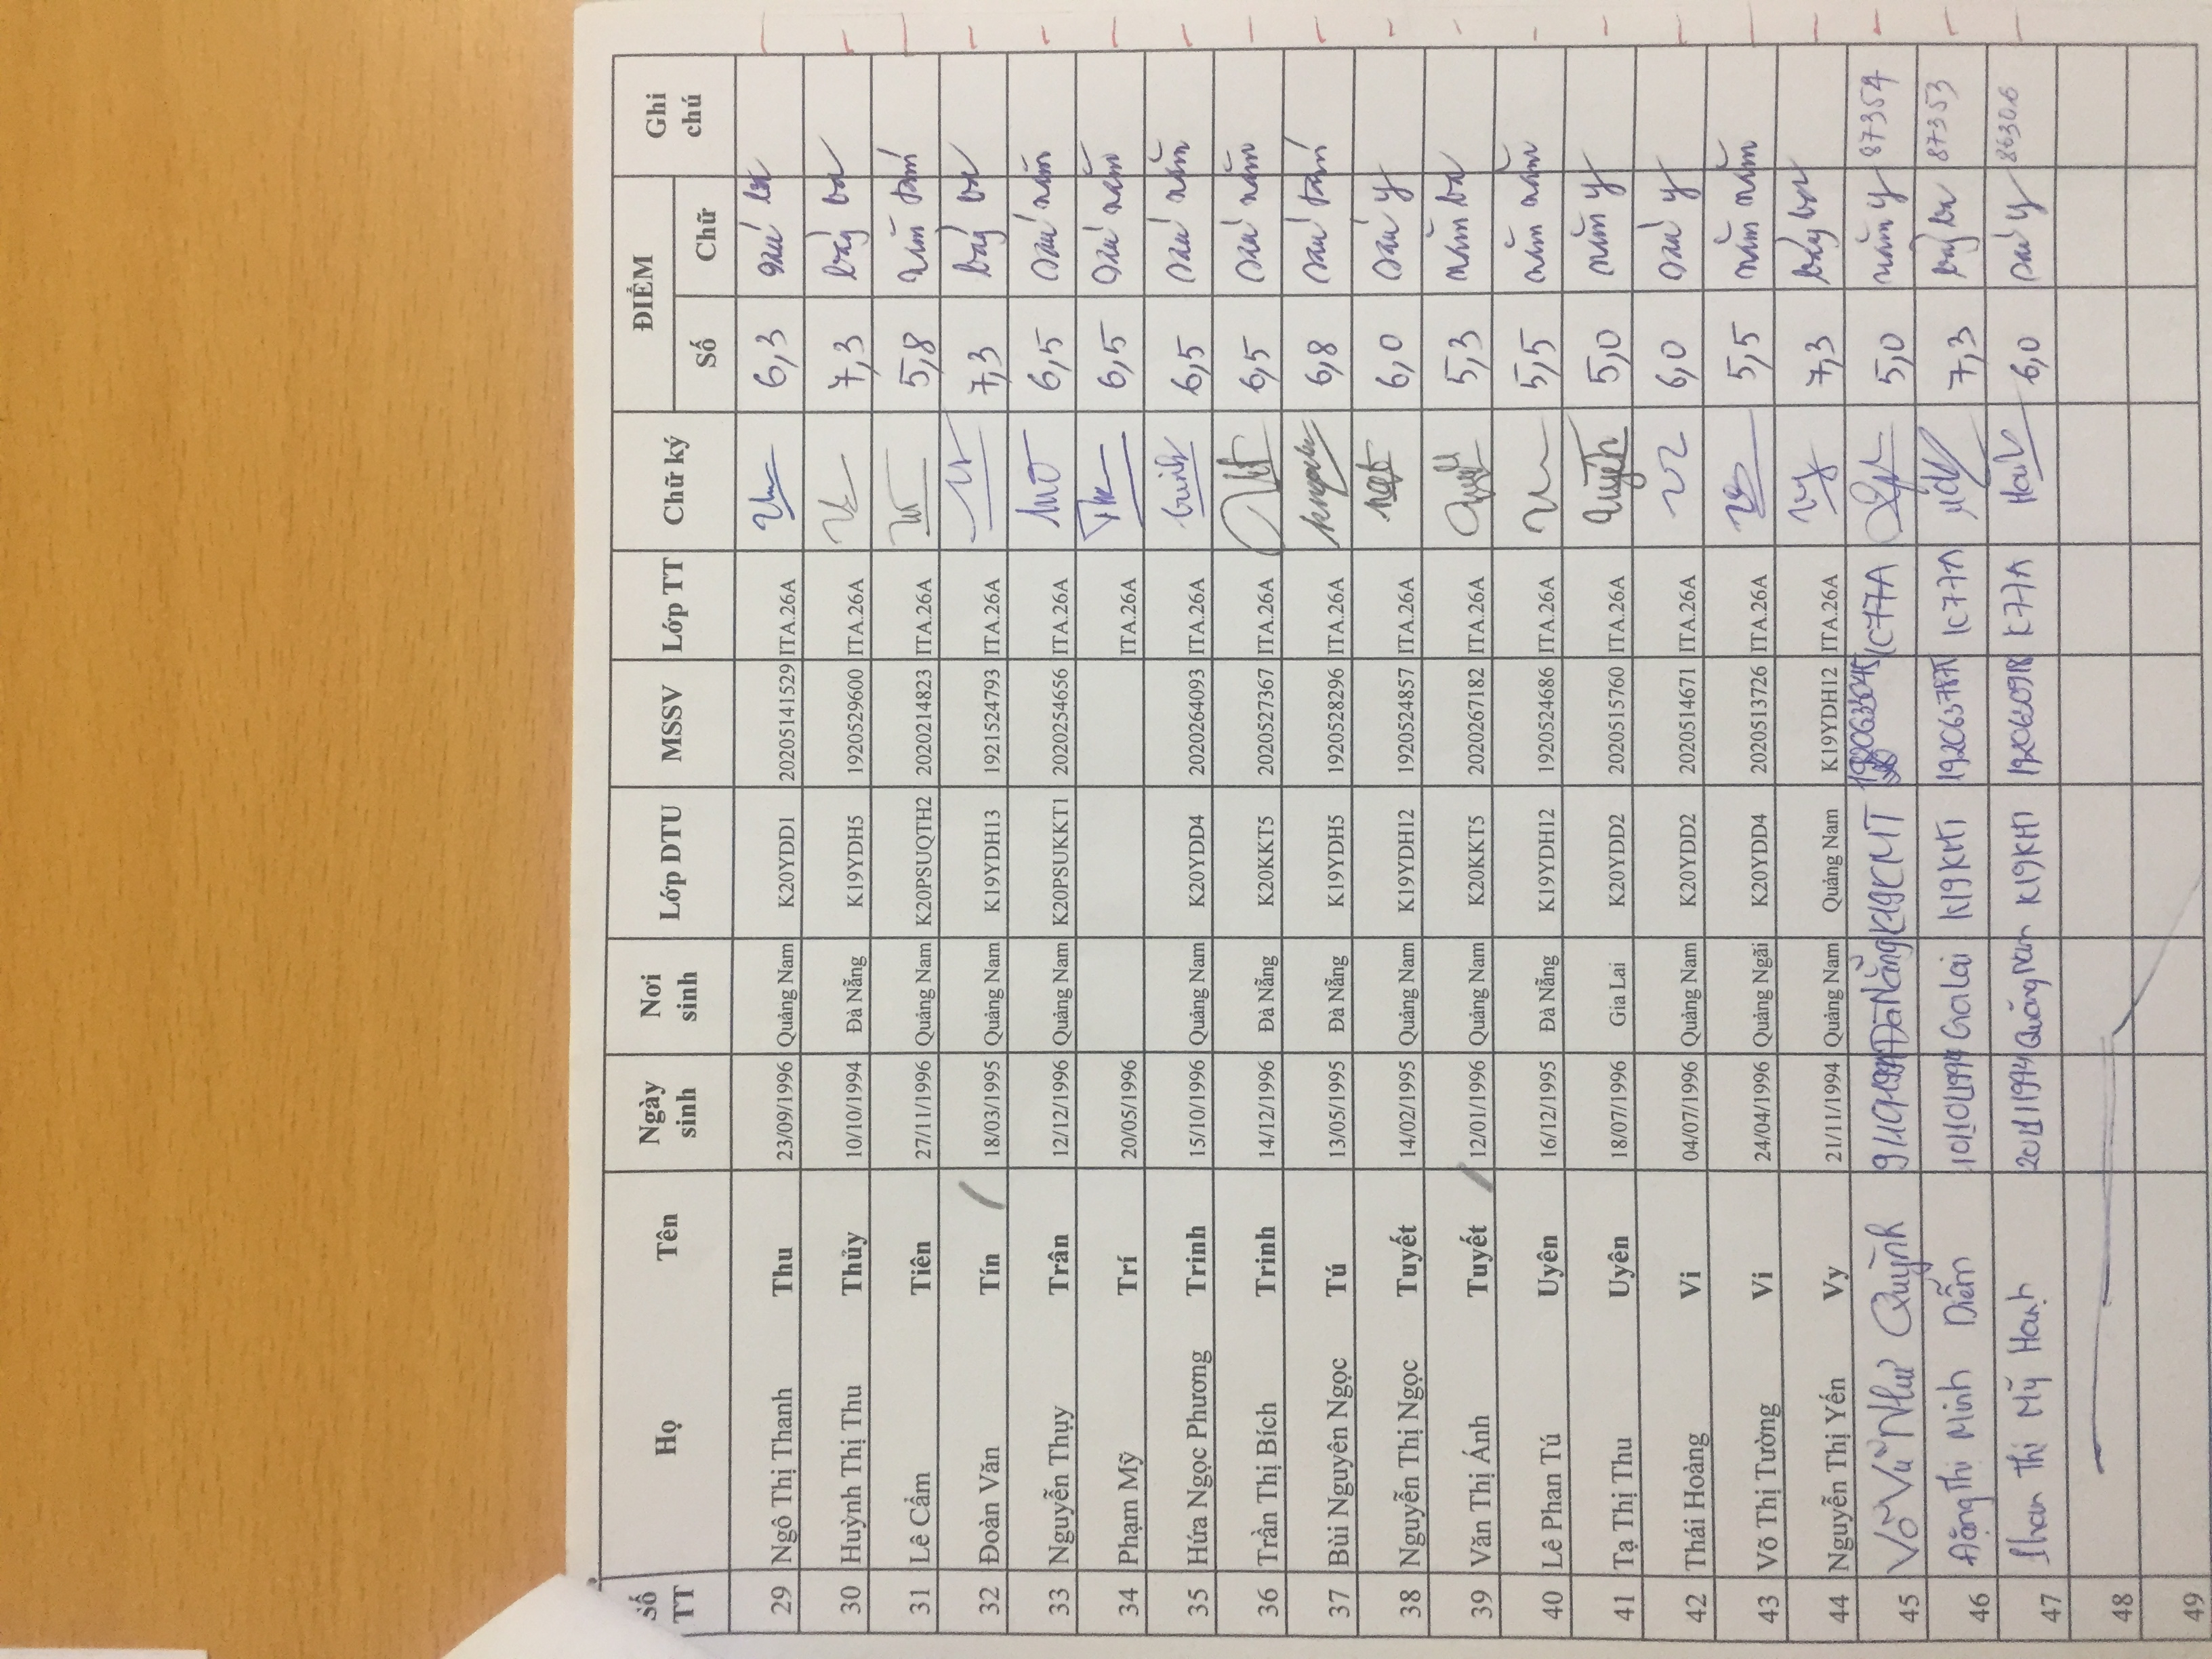 Số TT Họ Tên Ngày sinh Nơi sinh Lớp DTU MSSV Lớp TT Chữ ký ĐIỂM Ghi chú
Số Chữ
29 Ngô Thị Thanh Thu 23/09/1996 Quảng Nam K20YDD1 20205141529 ITA.26A 6,3 sáu ba
30 Huỳnh Thị Thu Thủy 10/10/1994 Đà Nẵng K19YDH5 1920529600 ITA.26A 7,3 bảy ba
31 Lê Cẩm Tiên 27/11/1996 Quảng Nam K20PSUQTH2 2020214823 ITA.26A 5,8 năm tám
32 Đoàn Văn Tín 18/03/1995 Quảng Nam K19YDH13 1921524793 ITA.26A 7,3 bảy ba
33 Nguyễn Thụy Trân 12/12/1996 Quảng Nam K20PSUKKT1 2020254656 ITA.26A 6,5 sáu năm
34 Phạm Mỹ Trí 20/05/1996 ITA.26A 6,5 sáu năm
35 Hứa Ngọc Phương Trinh 15/10/1996 Quảng Nam K20YDD4 2020264093 ITA.26A 6,5 sáu năm
36 Trần Thị Bích Trinh 14/12/1996 Đà Nẵng K20KKT5 2020527367 ITA.26A 6,5 sáu năm
37 Bùi Nguyên Ngọc Tú 13/05/1995 Đà Nẵng K19YDH5 1920528296 ITA.26A 6,8 sáu tám
38 Nguyễn Thị Ngọc Tuyết 14/02/1995 Quảng Nam K19YDH12 1920524857 ITA.26A 6,0 sáu y
39 Văn Thị Ánh Tuyết 12/01/1996 Quảng Nam K20KKT5 2020267182 ITA.26A 5,3 năm ba
40 Lê Phan Tú Uyên 16/12/1995 Đà Nẵng K19YDH12 1920524686 ITA.26A 5,5 năm năm
41 Tạ Thị Thu Uyên 18/07/1996 Gia Lai K20YDD2 2020515760 ITA.26A Quỳnh 5,0 năm y
42 Thái Hoàng Vi 04/07/1996 Quảng Nam K20YDD2 2020514671 ITA.26A 6,0 sáu y
43 Võ Thị Tường Vi 24/04/1996 Quảng Ngãi K20YDD4 2020513726 ITA.26A 5,5 năm năm
44 Nguyễn Thị Yến Vy 21/11/1994 Quảng Nam Quảng Nam K19YDH12 ITA.26A Vy 7,3 bảy ba
45 Võ Vũ Như Quỳnh Đà Nẵng K19KMT K77A 5,0 năm y 87354
46 Đặng Thị Minh Diễm 10/10/1994 Gia Lai K19KKT1 K77A 7,3 bảy ba 87353
47 Phan Thị Mỹ Hạnh 20/11/1994 Quảng Nam K19KKT1 K77A 6,0 sáu y
48
49